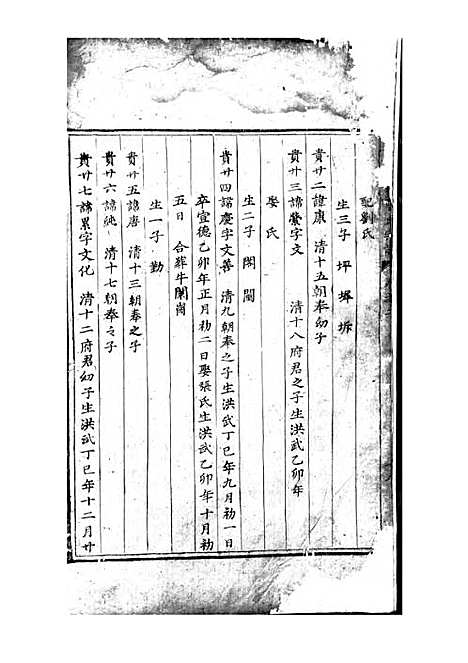 配劉氏
生三子 坪 墀 坼
貴廿二諱康 清十五朝奉幼子
貴廿三諱縈字文 清十八府君之子生洪武乙卯年
娶 氏
生二子 閑 閫
貴廿四諱慶字文善 清九朝奉之子生洪武丁巳年九月初一日
卒宣德乙卯年正月初二日娶張氏生洪武乙卯年十月初
五日 合葬牛闌崗
生一子 勤
貴廿五諱唐 清十三朝奉之子
貴廿六諱純 清十七朝奉之子
貴廿七諱累字文化 清十二府君幼子生洪武丁巳年十二月廿